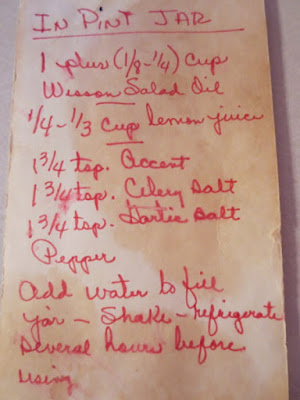 In Pint Jar
1 plus (1/8-1/4) cup
Wesson Salad Oil
1/4-1/3 cup lemon juice
1 3/4 tsp. Accent
1 3/4 tsp. Celery Salt
1 3/4 tsp. Garlic Salt
Pepper
Add water to fill
jar - Shake - refrigerate
several hours before
using